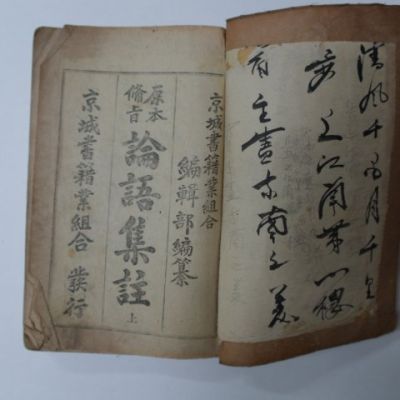 清風千月千里
江南第一樓
主賓東南之美
京城書籍業組合
編輯部編纂
原本
備旨
論語集註 上
京城書籍業組合 發行